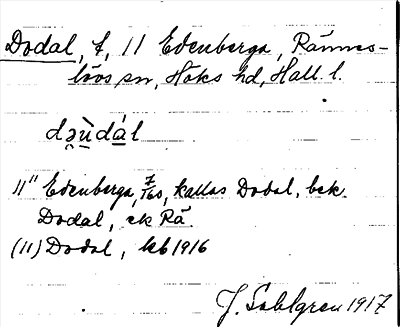 Dodal, t, 11 Edenberga, Rännes-
lövs sn, Höks hd, Hall. l.
də̯ùdál
11" Edenberga, 7/16s, kallas Dodal, bek.
Dodal, ek Rä.
(11) Dodal, kb 1916
J. Sahlgren 1917